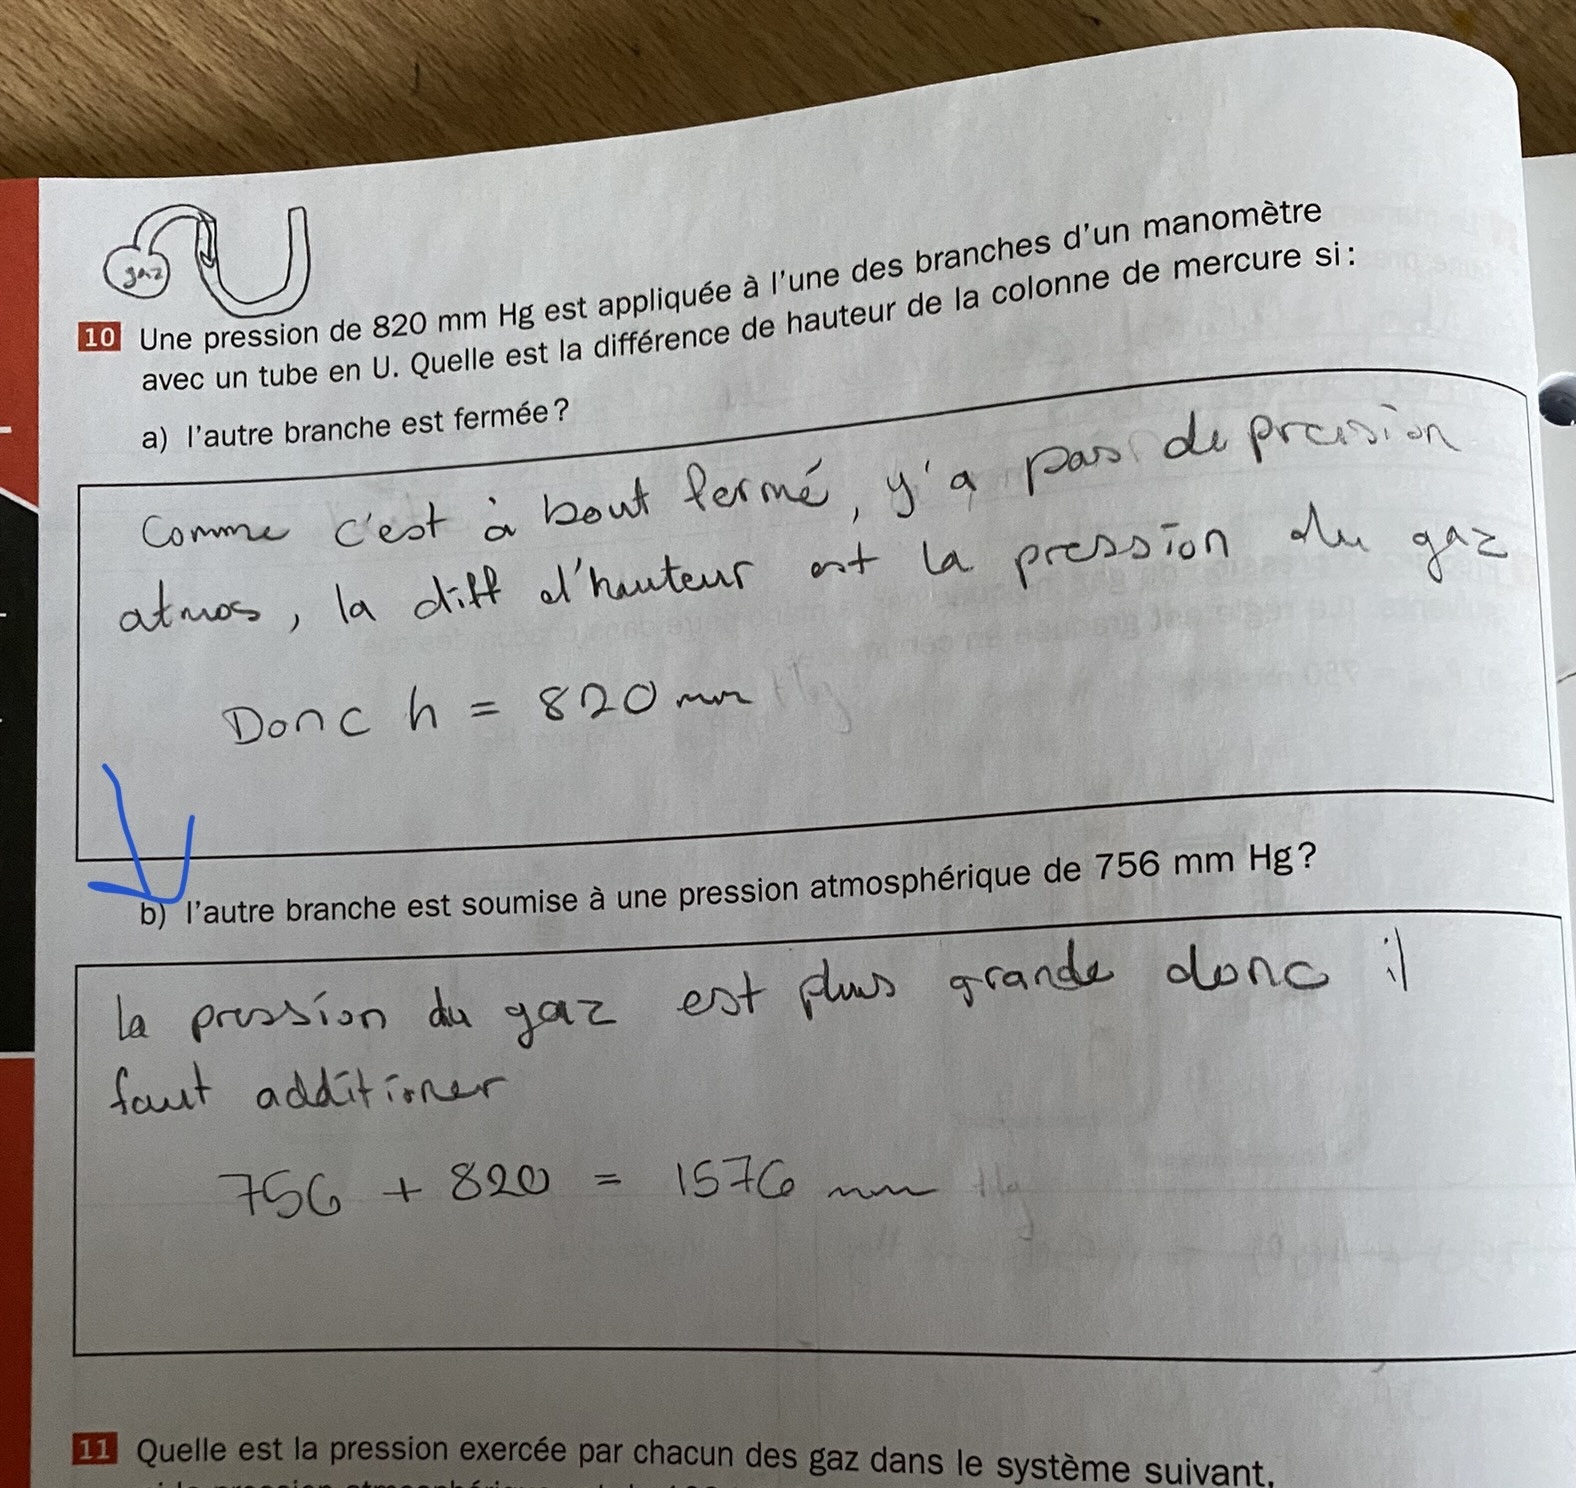 gaz
10 Une pression de 820 mm Hg est appliquée à l'une des branches d'un manomètre
avec un tube en U. Quelle est la différence de hauteur de la colonne de mercure si :
a) l'autre branche est fermée ?
Comme c'est à bout fermé, y'a pas de pression
atmos, la diff d'hauteur est la pression du gaz
Donc h = 820 mm Hg
b) l'autre branche est soumise à une pression atmosphérique de 756 mm Hg ?
la pression du gaz est plus grande donc il
faut additioner
756 + 820 = 1576 mm Hg
11 Quelle est la pression exercée par chacun des gaz dans le système suivant,